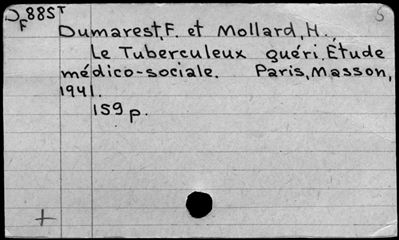 J885T 5
F
Dumarest,F. et Mollard,H.,
Le Tuberculeux guéri.Étude
médico-sociale. Paris,Masson,
1941.
159 p.
+